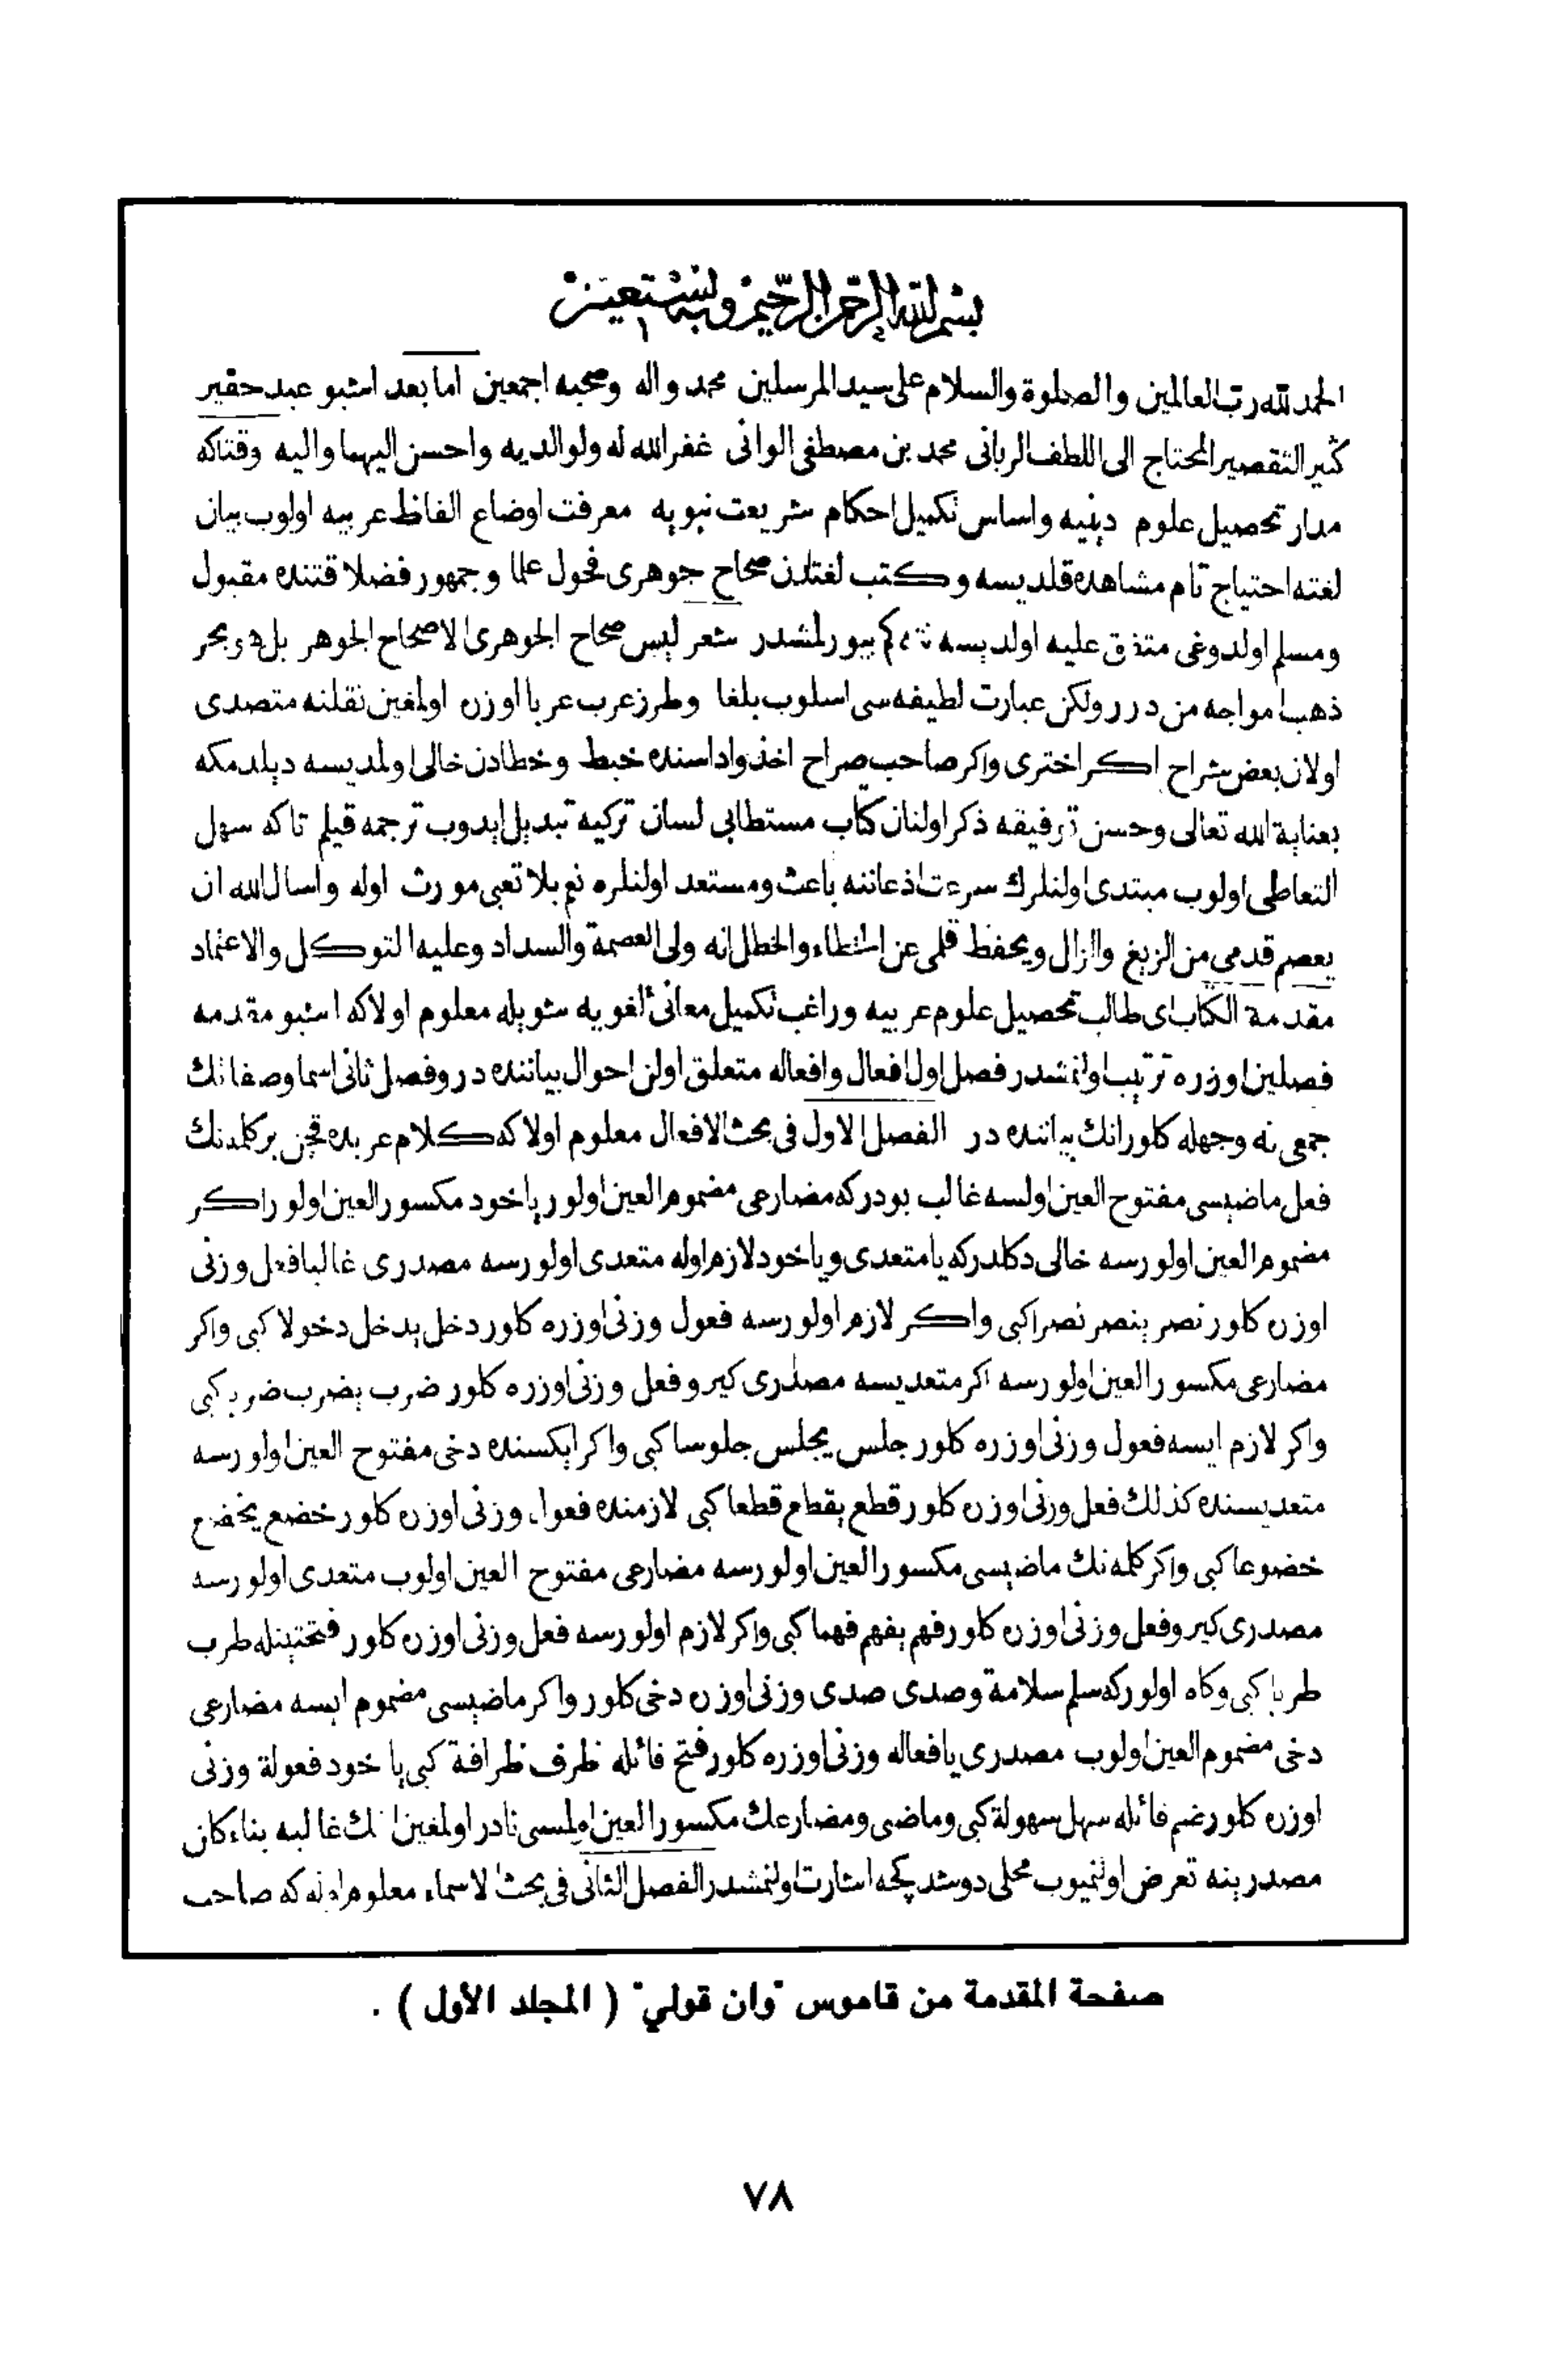 بسم الله الرحمن الرحيم وبه نستعين
الحمد لله رب العالمين والصلوة والسلام على سيد المرسلين محمد واله وصحبه اجمعين اما بعد اشبو عبد حقير
كثير التقصير المحتاج الى اللطف الربانى محمد بن مصطفى الوانى غفر الله له ولوالديه واحسن اليهما واليه وقتاكه
مدار تحصيل علوم دينيه واساس تكميل احكام شريعت نبويه معرفت اوضاع الفاظ عربيه اولوب بيان
لغته احتياج تام مشاهده قلديسه وكتب لغتدن صحاح جوهرى فحول علما وجمهور فضلا قتنده مقبول
ومسلم اولدوغى متفق عليه اولديسه كم بيورلمشدر شعر ليس صحاح الجوهرى الا صحاح الجوهر بل هو بحر
ذهب امواجه من درر ولكن عبارت لطيفه سى اسلوب بلغا وطرز عرب عربا اوزره اولمغين نقلنه متصدى
اولان بعض شراح اكر اخترى واكر صاحب صراح اخذ واداسنده خبط وخطادن خالى اولمديسه ديلدمكه
بعناية الله تعالى وحسن توفيقه ذكر اولنان كتاب مستطابى لسان تركيه تبديل ايدوب ترجمه قيلم تا كه سهل
التعاطى اولوب مبتدى اولنلرك سرعت اذعاننه باعث ومستعد اولنلره نعم بلا تعبى مورث اوله واسال الله ان
يعصم قدمى من الزيغ والزلل ويحفظ قلمى عن الخطاء والخطل انه ولى العصمة والسداد وعليه التوكل والاعتماد
مقدمة الكتاب اى طالب تحصيل علوم عربيه وراغب تكميل معانئ لغويه شويله معلوم اولا كه اشبو مقدمه
فصلين اوزره ترتيب اولنمشدر فصل اول افعال وافعاله متعلق اولن احوال بياننده در وفصل ثانى اسما وصفاتك
جمعى نه وجهله كلور انك بياننده در الفصل الاول فى بحث الافعال معلوم اولا كه كلام عربده قچن بر كلمه نك
فعل ماضيسى مفتوح العين اولسه غالب بودر كه مضارعى مضموم العين اولور ياخود مكسور العين اولور اكر
مضموم العين اولورسه خالى دكلدر كه يا متعدى وياخود لازم اوله متعدى اولورسه مصدرى غالبا فعل وزنى
اوزره كلور نصر ينصر نصرا كبى واكر لازم اولورسه فعول وزنى اوزره كلور دخل يدخل دخولا كبى واكر
مضارعى مكسور العين اولورسه اكر متعديسه مصدرى كيرو فعل وزنى اوزره كلور ضرب يضرب ضربا كبى
واكر لازم ايسه فعول وزنى اوزره كلور جلس يجلس جلوسا كبى واكر ايكسنده دخى مفتوح العين اولورسه
متعديسنده كذلك فعل وزنى اوزره كلور قطع يقطع قطعا كبى لازمنده فعول وزنى اوزره كلور خضع يخضع
خضوعا كبى واكر كلمه نك ماضيسى مكسور العين اولورسه مضارعى مفتوح العين اولوب متعدى اولورسه
مصدرى كيرو فعل وزنى اوزره كلور فهم يفهم فهما كبى واكر لازم اولورسه فعل وزنى اوزره كلور فتحتينله طرب
طربا كبى وكاه اولور كه سلم سلامة وصدى صدى وزنى اوزره دخى كلور واكر ماضيسى مضموم ايسه مضارعى
دخى مضموم العين اولوب مصدرى يا فعاله وزنى اوزره كلور فتح فائله ظرف ظرافة كبى يا خود فعولة وزنى
اوزره كلور ضم فائله سهل سهولة كبى وماضى ومضارعك مكسور العين اولمسى نادر اولمغين انك غالبه بناء كان
مصدرينه تعرض اولنميوب محلى دوشدكچه اشارت اولنمشدر الفصل الثانى فى بحث الاسماء معلوم اوله كه صاحب
صفحة المقدمة من قاموس "وان قولي" ( المجلد الأول ) .
٧٨